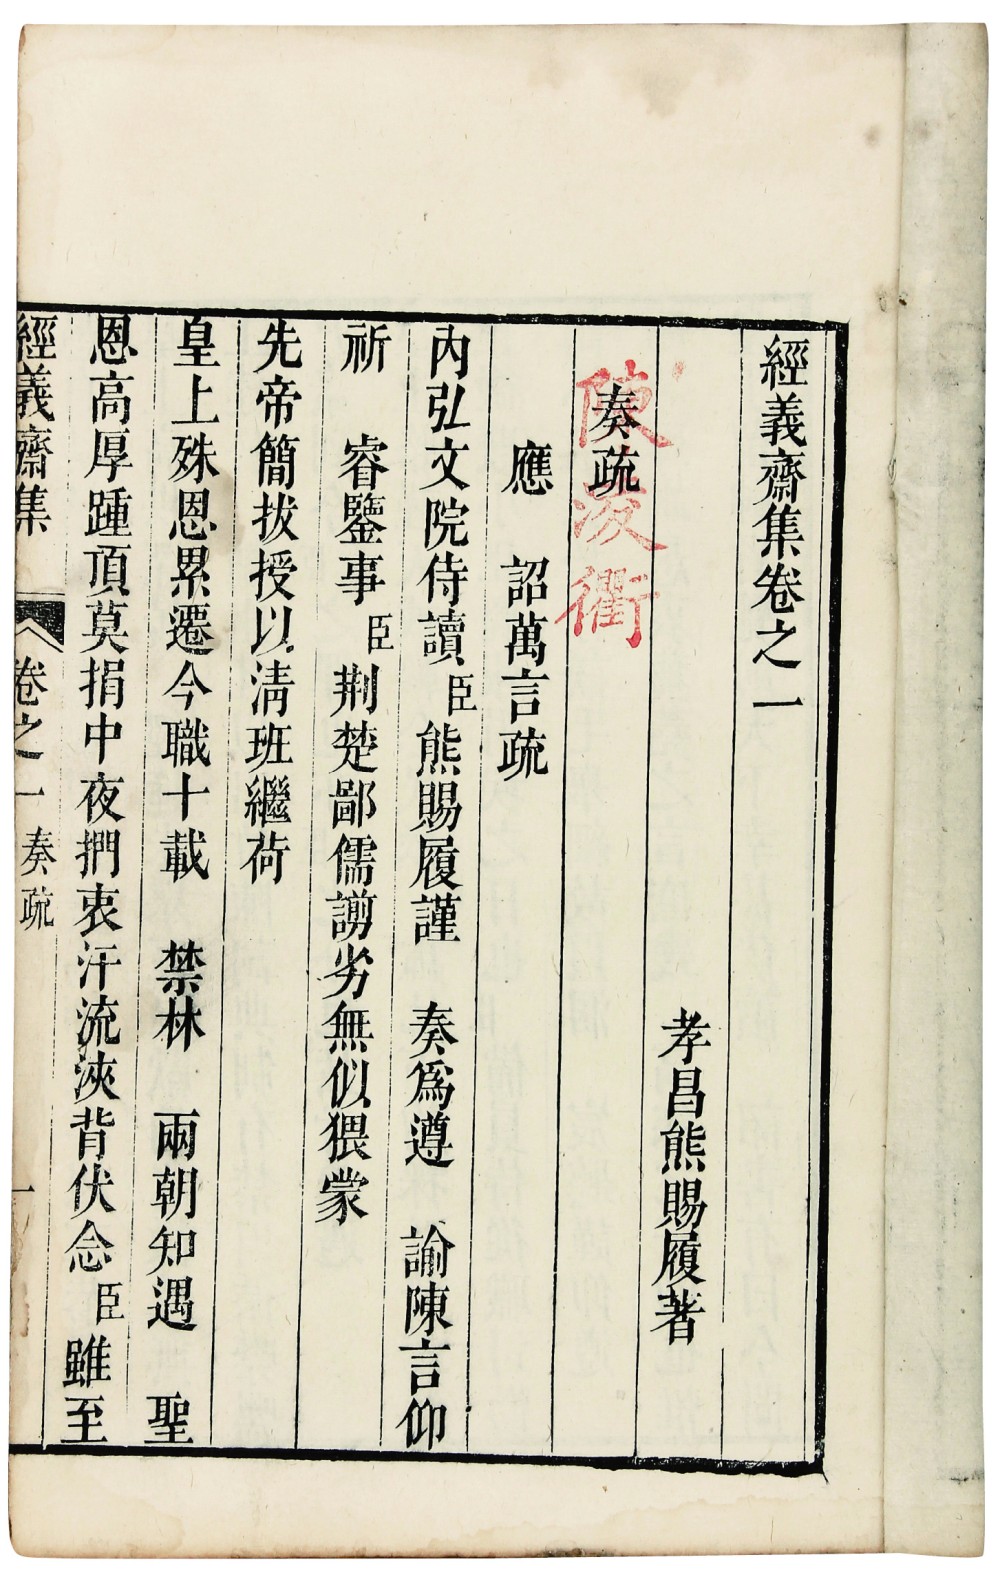 經義齋集卷之一
孝昌熊賜履著
奏疏
陳淩衢
應　詔萬言疏
內弘文院侍讀臣熊賜履謹　奏爲遵　諭陳言仰
祈　睿鑒事臣荆楚鄙儒謭劣無似猥蒙
先帝簡拔授以清班繼荷
皇上殊恩累遷今職十載　禁林　兩朝知遇　聖
恩高厚踵頂莫捐中夜捫衷汗流浹背伏念臣雖至
經義齋集　卷之一　奏疏　一